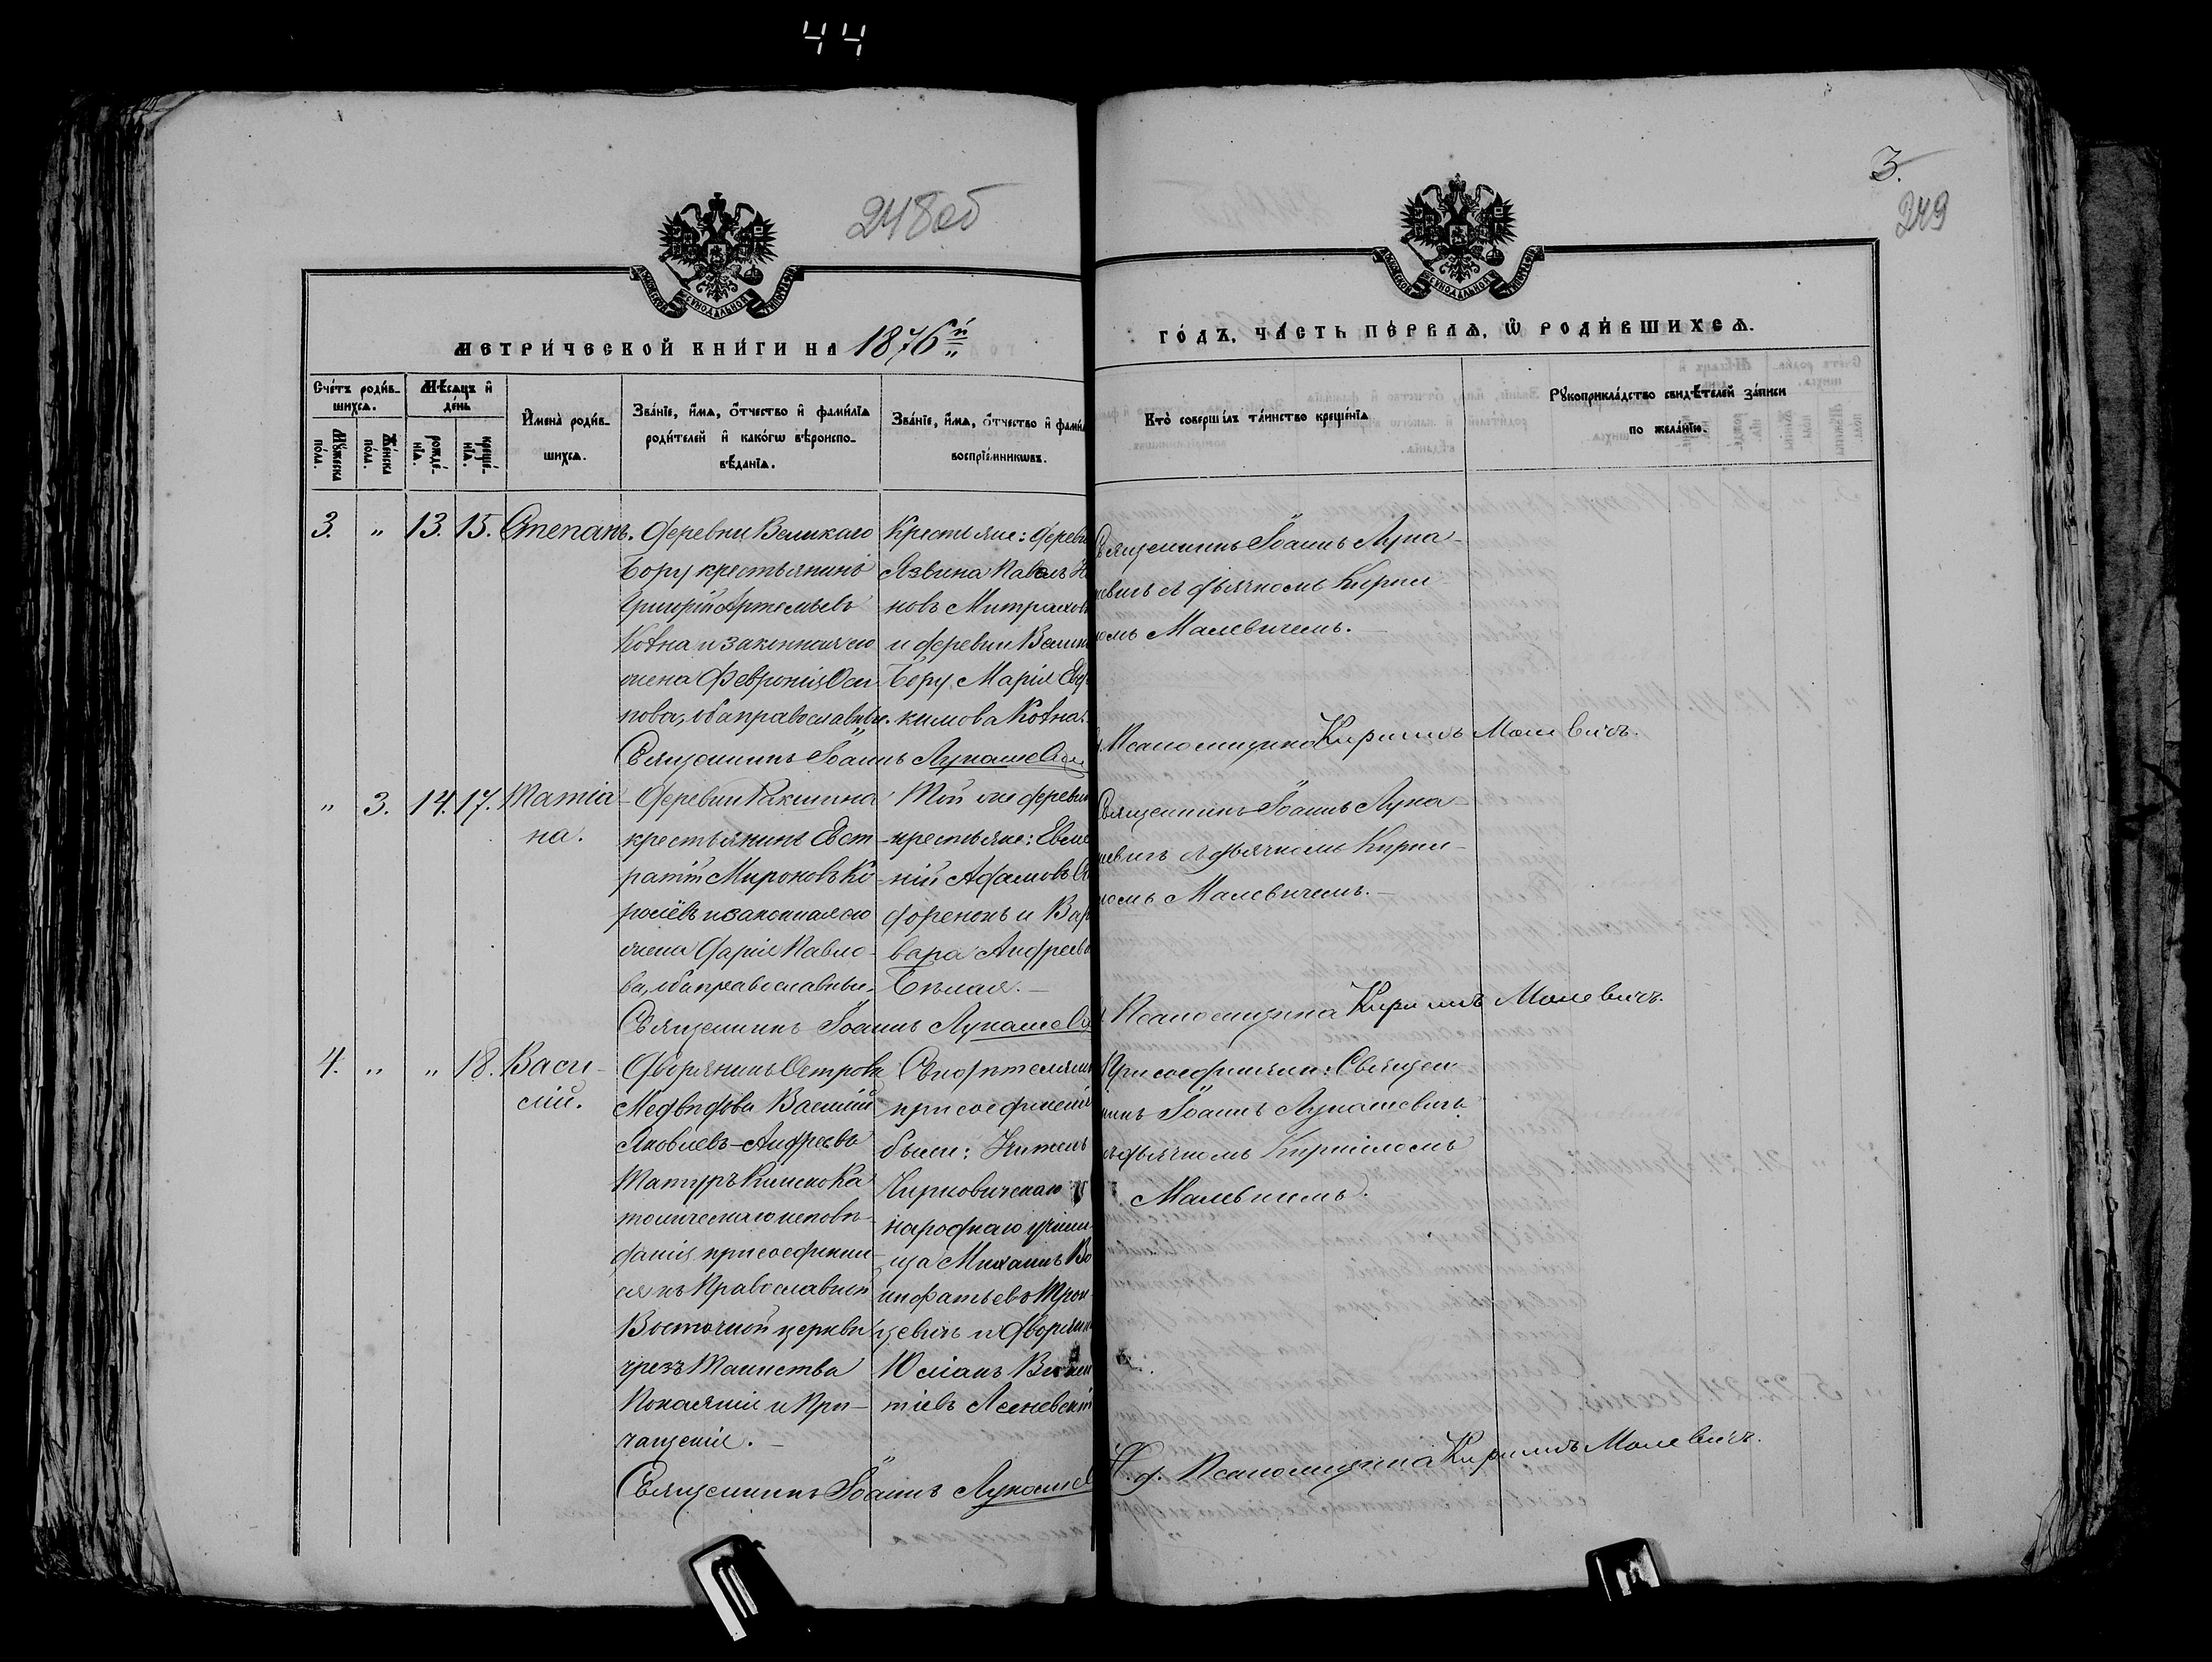 44
248об
3.
249
МЕТРИ́ЧЕСКОЙ КНИ́ГИ НА 1876й
ГО́ДЪ, ЧА́СТЬ ПЕ́РВАѦ, Ѡ҆ РОДИ́ВШИХСѦ.
Сче́тъ роди́в-
шихсѧ.
Мꙋ́жеска по́ла.
Же́нска по́ла.
Мѣ́сѧцъ и҆
де́нь
рожде́-
нїѧ.
креще́-
нїѧ.
И҆мена̀ роди́в-
шихсѧ.
Зва́нїе, и҆́мѧ, ѻ҆́тчество и҆ фами́лїѧ
роди́телей и҆ како́гѡ вѣроиспо-
вѣ́данїѧ.
Зва́нїе, и҆́мѧ, ѻ҆́тчество и҆ фами́л
воспрїе́мникѡвъ.
Кто̀ соверша́лъ та́инство креще́нїѧ
Рꙋкоприкла́дство свидѣ́телей за́писи
по жела́нїю.
3. " 13. 15. Степанъ.
Деревни Великаго
Бору крестьянинъ
Григорій Артемьевъ
Ковна и законная его
жена Февронія Оси-
пова, оба православные.
Священникъ Іоаннъ Лукашеви
Крестьяне: дерев
Язвина Павелъ
новъ
и деревни Велик
Бору Марія Евд
кимова Ковна.
Священникъ Іоаннъ Лука-
шевичъ съ дьячкомъ Кирил-
ломъ Малевичемъ.
Псаломщика Кириллъ Малевичъ.
" 3. 14. 17. Татіа-
на.
Деревни Ракшина
крестьянинъ Евст-
ратій Мироновъ Ко-
ролёвъ и законная его
жена Дарія Павло-
ва, оба православные.
Священникъ Іоаннъ Лукашеви
Той же деревни
крестьяне: Евме
ній Адамовъ
доренокъ и Вар
вара Андреева
Бѣлая.
Священникъ Іоаннъ Лука-
шевичъ съ дьячкомъ Кирил-
ломъ Малевичемъ.
Псаломщика Кириллъ Малевичъ.
4. " " 18. Васи-
лій.
Дворянинъ Острова
Медвѣдова Василій
Яковлевъ-Андреевъ
Татуръ Римско Ка
толическаго исповѣ-
данія присоединил-
ся къ Православной
Восточной церкви
чрезъ Таинства
Покаянія и При-
чащенія.
Священникъ Іоаннъ Лукашев
Свидѣтелями
присоединенія
были: Учитель
Чирковичскаго
народнаго учили-
ща Михаилъ Во
нифатьевъ Трои-
цевичъ и дворянин
Юліанъ Викен
тіевъ Ясеневскій
Присоединяли: Священ-
никъ Іоаннъ Лукашевичъ
съ дьячкомъ Кирилломъ
Малевичемъ.
И. д. Псаломщика Кириллъ Малевичъ.